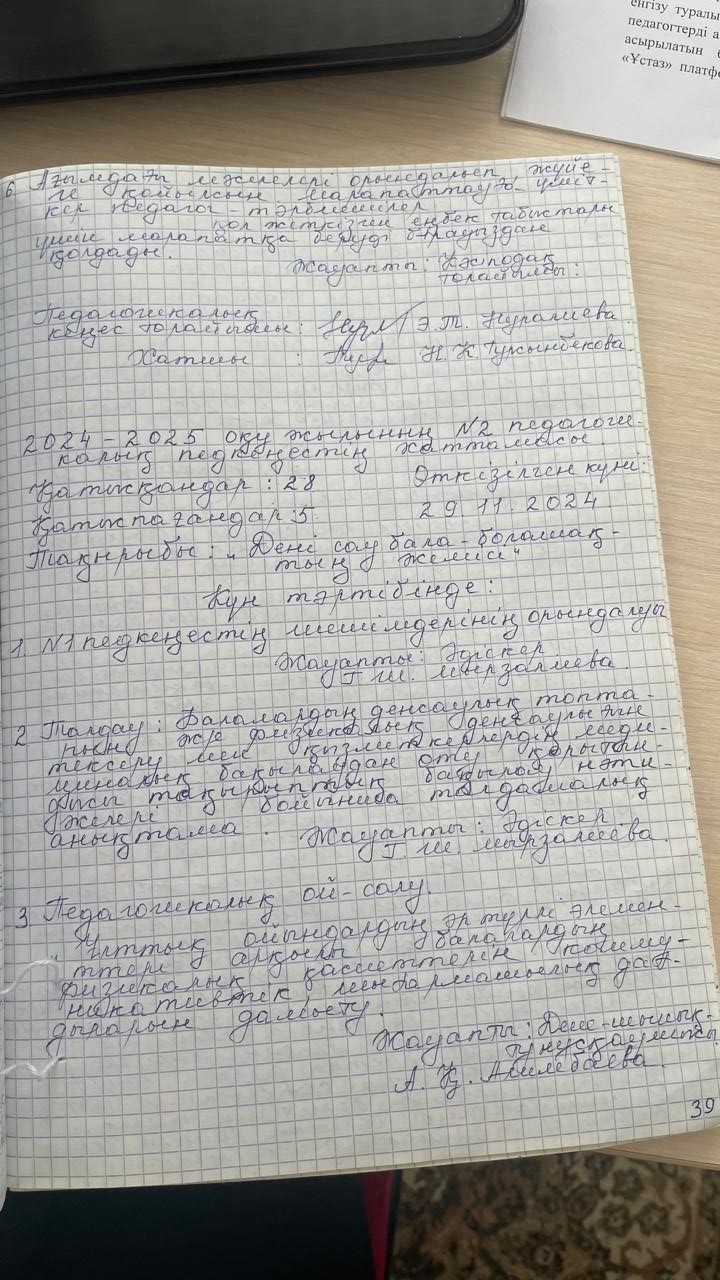 енгізу туралы
педагогтерді а
асырылатын
«Ұстаз» платфо
6. Ағымдағы мәселелері орындалып, жүйе-
ге қойылсын марапаттауға үміт-
кер педагог-тәрбиешілер
қол жеткізген еңбек табыстары
үшін марапатқа беруді бірауыздан
қолдады.
Жауапты: Кәсіподақ
төрайымы:
Педагогикалық
кеңес төрайымы: Э.Т. Нуралиева.
Хатшы : Н.К. Тұрсынбекова.
2024-2025 оқу жылының №2 педагоги-
калық педкеңестің хаттамасы.
Қатысқандар: 28 Өткізілген күні:
Қатыспағандар: 5. 29.11.2024
Тақырыбы: „Дені сау бала-болашақ-
тың жемісі"
Күн тәртібінде:
1. №1 педкеңестің шешімдерінің орындалуы
Жауапты: Әдіскер
Г.Ш. Мырзалиева.
2 Талдау: Балалардың денсаулық топта-
рының және физикалық денсаулығын
тексеру мен қызметкерлердің меди-
циналық бақылаудан өту қорытын-
дысы тақырыптық бақылау нәти-
желері бойынша талдамалық
анықтама. Жауапты: Әдіскер.
Г.Ш. Мырзалиева.
3. Педагогикалық ой-салу.
„Ұлттық ойындардың әр түрлі элемен-
ттері арқылы балалардың
физикалық қасиеттерін комму-
никативтік шығармашылық дағ-
дыларын дамыту.
Жауапты: Дене-шынық-
нұсқаушысы
А. Қ. Ашлебаева.
39